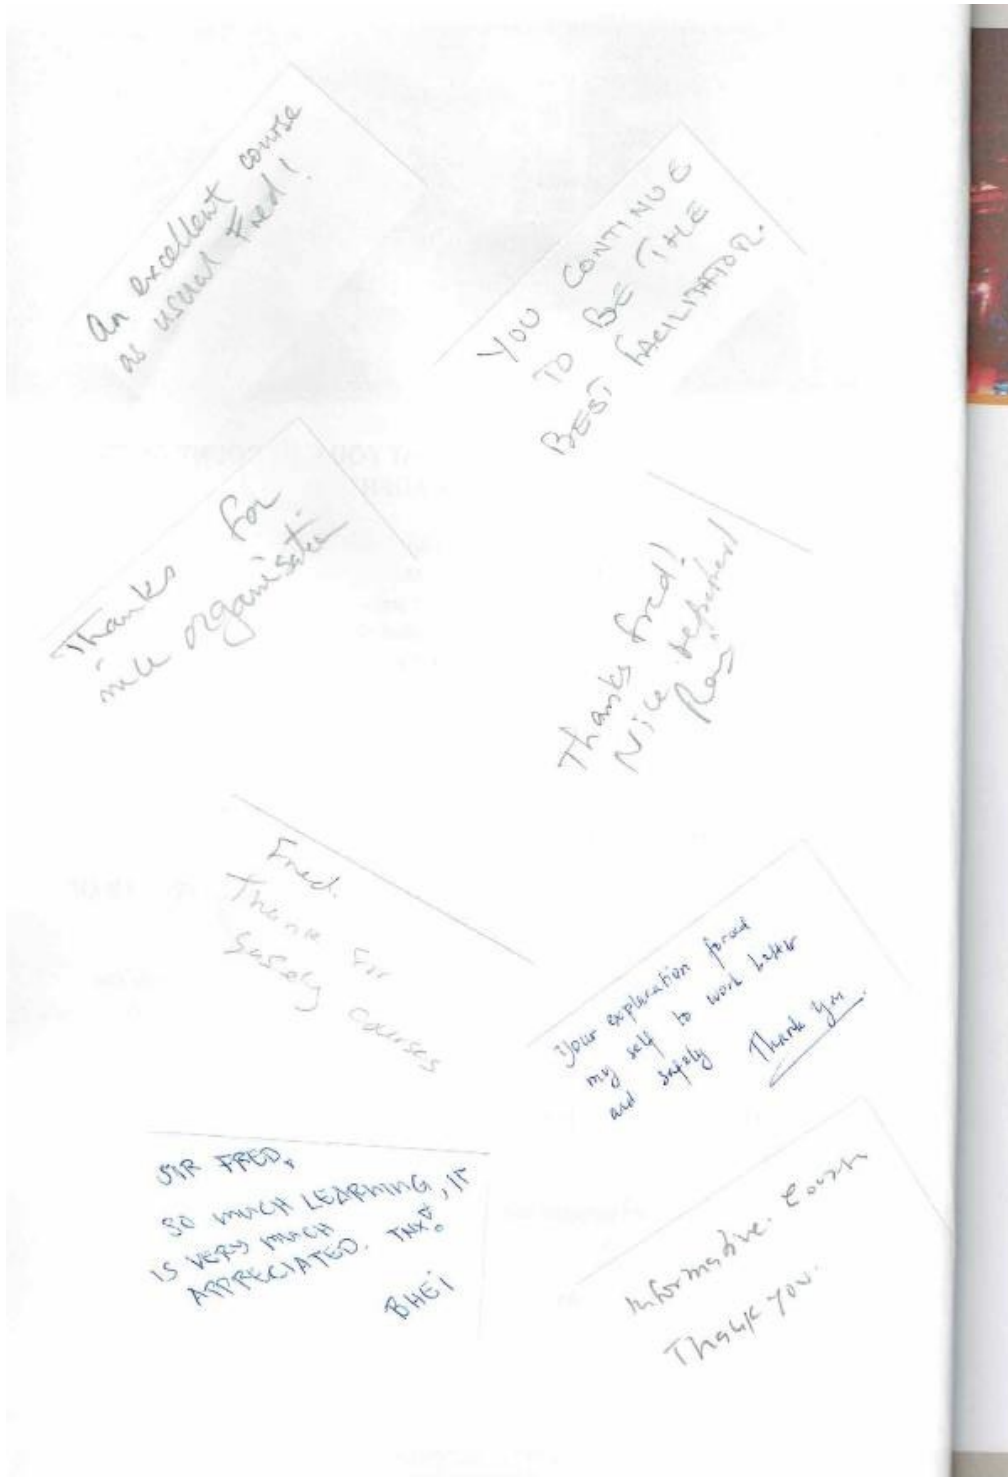 An excellent course
as usual Fred!
YOU CONTINUE
TO BE THE
BEST FACILITATOR.
Thanks for
nice organisation
Thanks Fred!
Nice
Fred.
Thank for
Safely Courses
Your explanation forced
my self to work better
and safely Thank you.
SIR FRED,
SO MUCH LEARNING, IT
IS VERY MUCH
APPRECIATED. TNX!
BHEI
Informative. Course
Thank you.